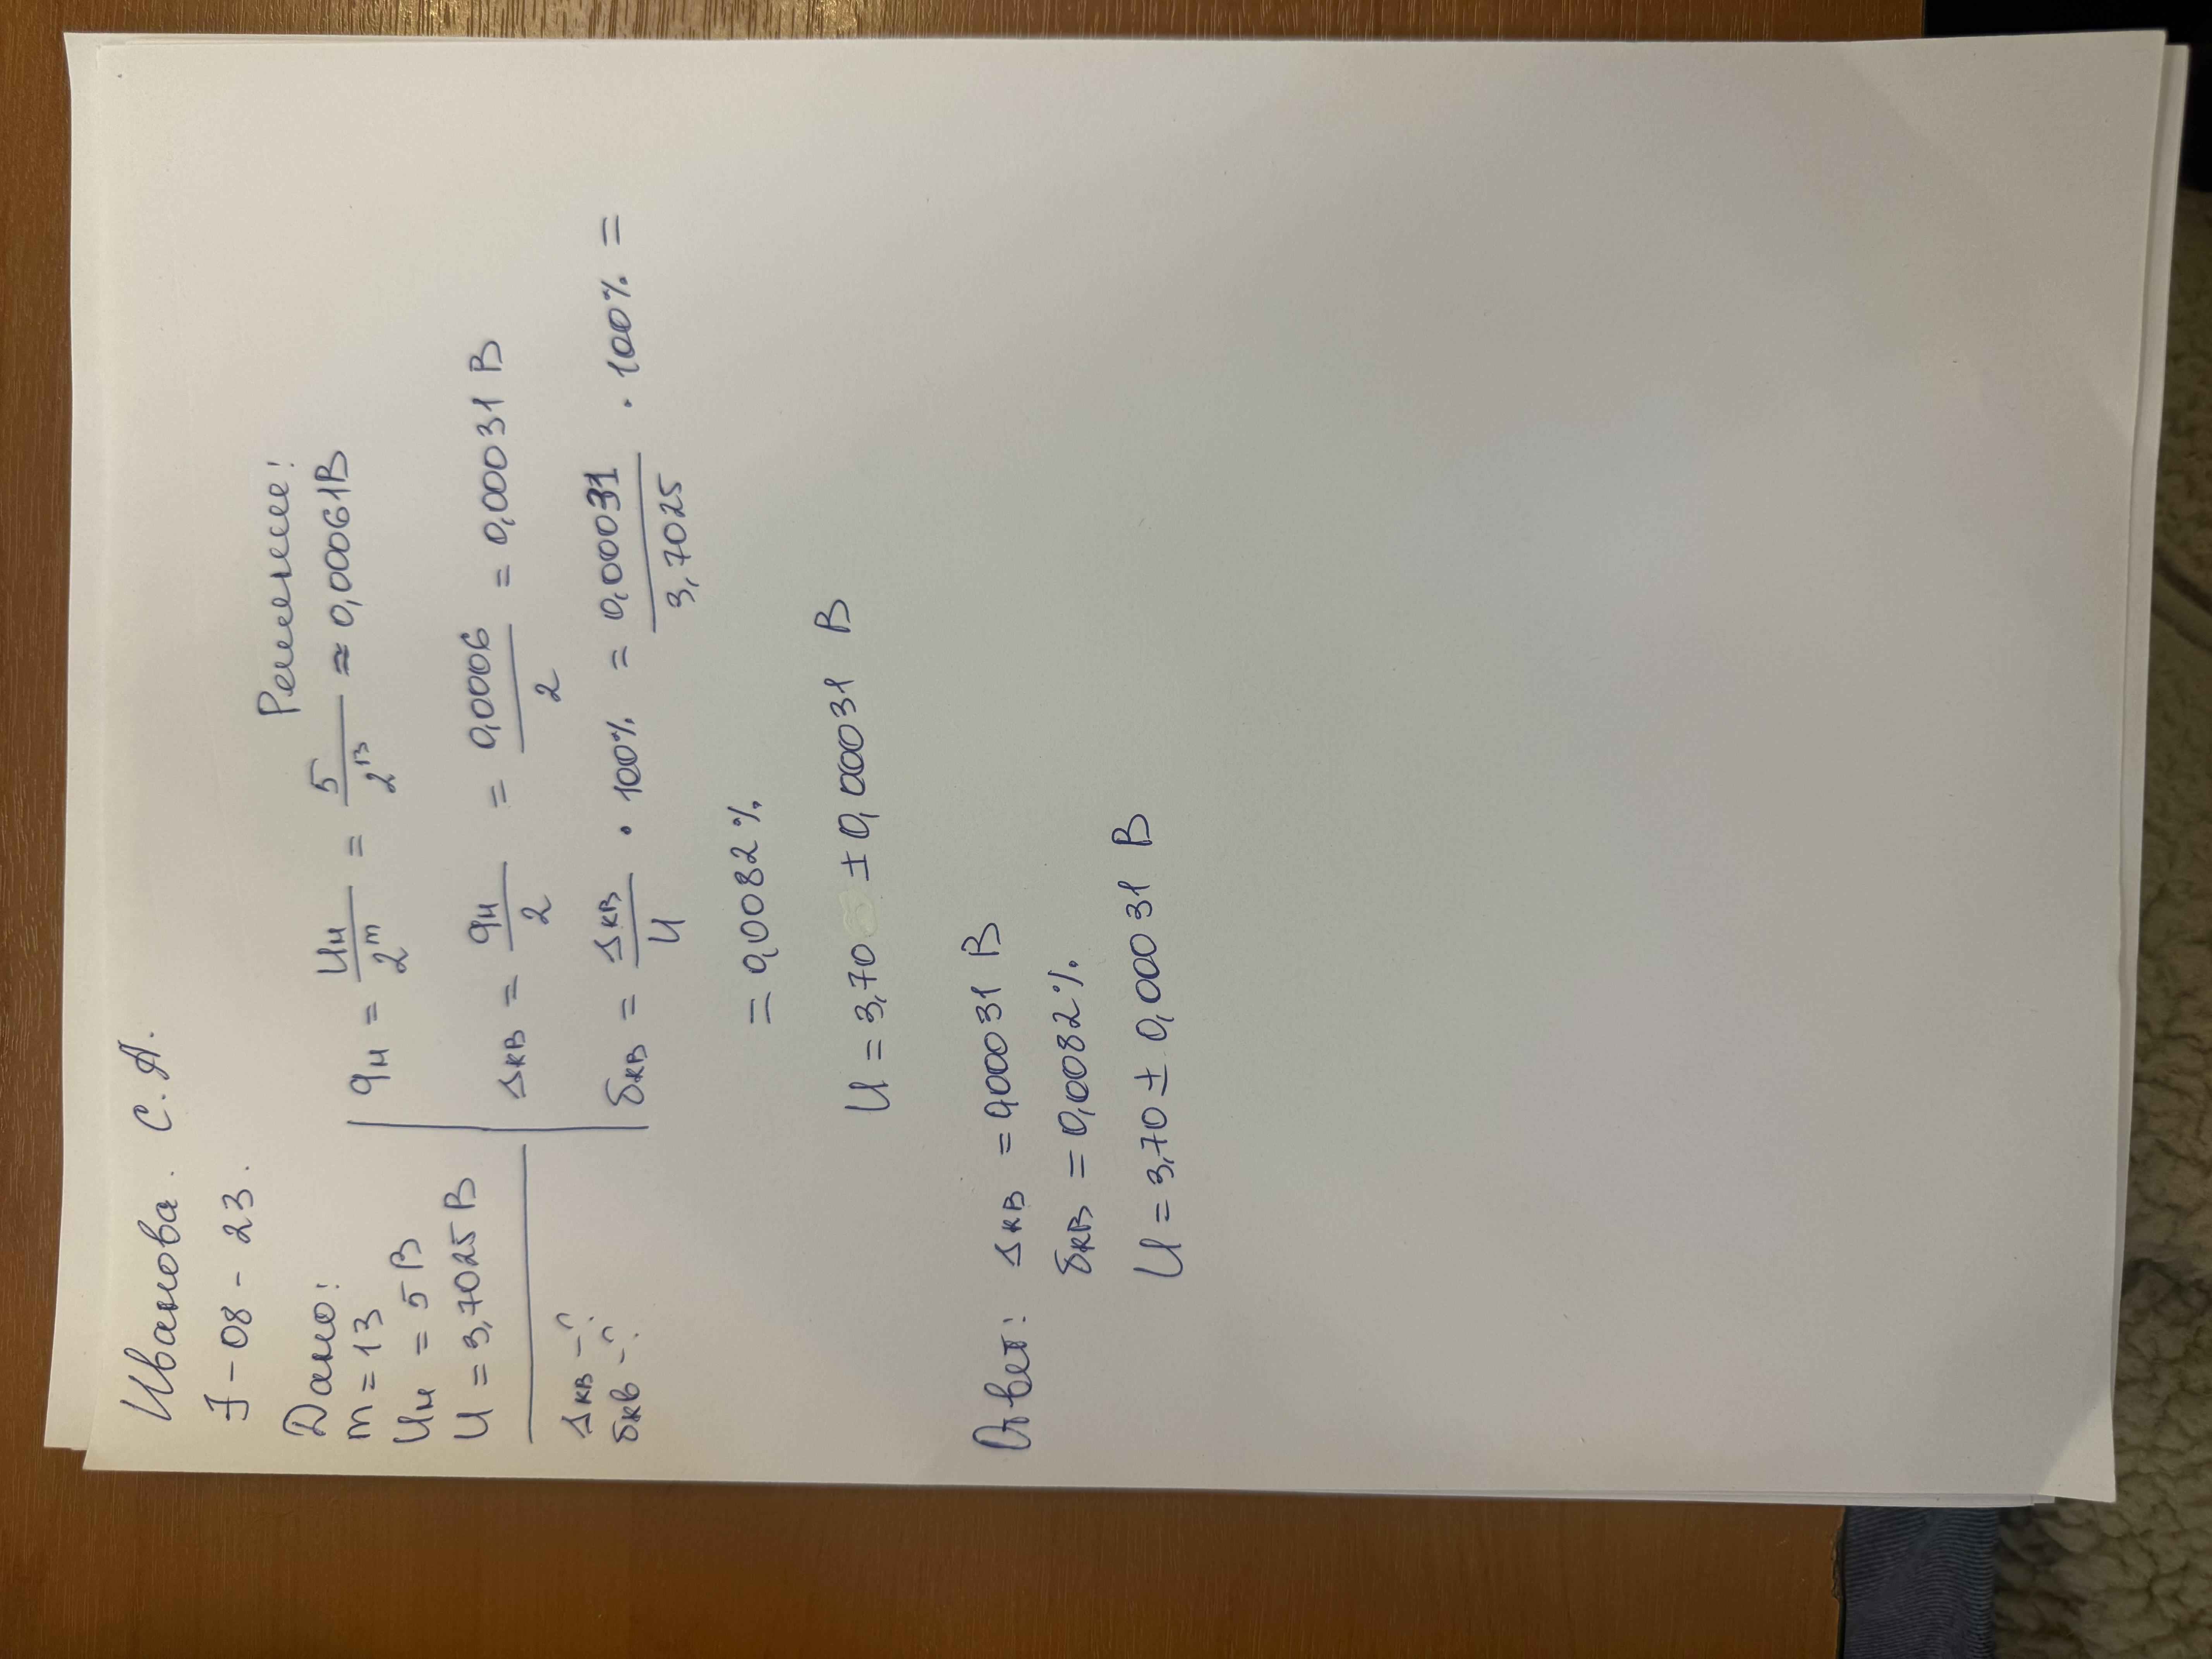 Иванова. С.А.
Э-08-23.
Дано:
m = 13
Uн = 5 В
U = 3,7025 В
Δкв -?
δкв -?
Решение:
qн = Uн/2^m = 5/2^13 ≈ 0,00061 В
Δкв = qн/2 = 0,0006/2 = 0,00031 В
δкв = Δкв/U · 100% = 0,00031/3,7025 · 100% =
= 0,0082%
U = 3,70 ± 0,00031 В
Ответ: Δкв = 0,00031 В
δкв = 0,0082%
U = 3,70 ± 0,00031 В